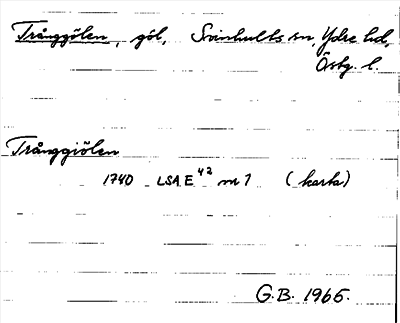 Trånggölen, göl, Svinhults sn, Ydre hd,
Östg. l.
Trånggiölen
1740 LSA E 42 nr 1 (karta)
G.B. 1965.